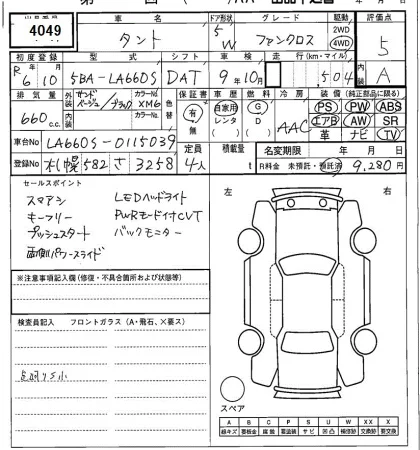 出品番号 車名 ドア形状 グレード 駆動 評価点
4049 タント 5 W ファンクロス 2WD 4WD 5
初度登録 型式 シフト 車検 走行(km・マイル) 内装
R6/10 5BA-LA660S DAT 9年10月 504 A
排気量 外装 カラーNo 色替 保証書 車歴 燃料 冷房 装備(純正部品に限る)
660c.c. サンドベージュ/ブラック XM6 有 無 自家用 レンタ G D AAC PS PW ABS
エアB AW SR
革 ナビ TV
車台No LA660S-0115039 定員 積載量 名変期限 年 月 日
登録No 札幌 582 さ 3258 4人 t R料金 未預託・預託済 9,280円
セールスポイント
スマアシ LEDヘッドライト
キーフリー PWRモード付CVT
プッシュスタート バックモニター
両側パワースライド
左 右
※注意事項記入欄(修復・不具合箇所および状態等)
検査員記入 フロントガラス(A・飛石、×要ス)
スペア
A B C P S U W X XX
線キズ 要板金 腐蝕 要塗装 サビ 凹凸 補修跡 交換跡 要交換